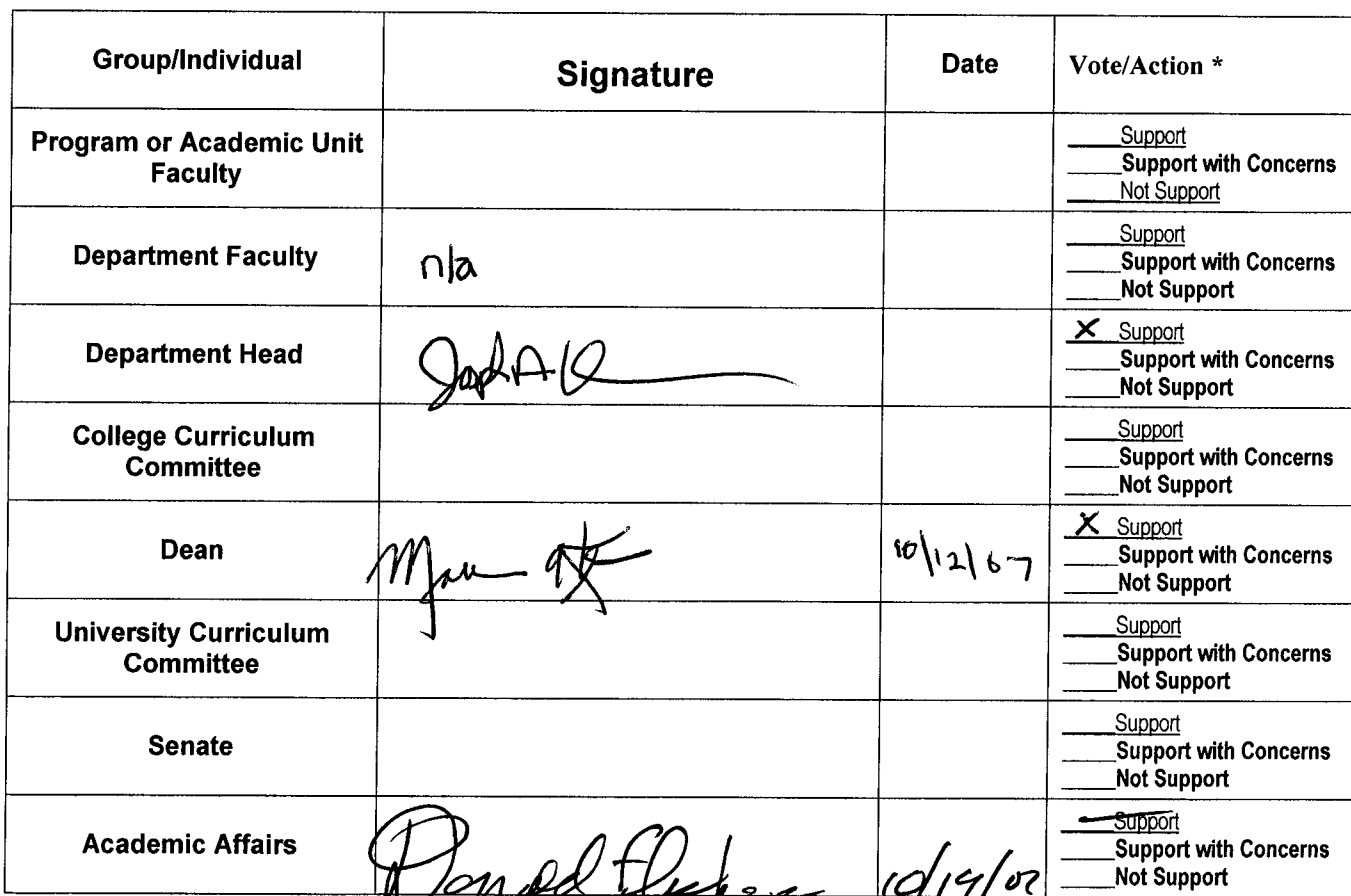 Group/Individual
Signature
Date
Vote/Action *
Program or Academic Unit
Faculty
____Support
____Support with Concerns
____Not Support
Department Faculty
n/a
____Support
____Support with Concerns
____Not Support
Department Head
X Support
____Support with Concerns
____Not Support
College Curriculum
Committee
____Support
____Support with Concerns
____Not Support
Dean
10/12/07
X Support
____Support with Concerns
____Not Support
University Curriculum
Committee
____Support
____Support with Concerns
____Not Support
Senate
____Support
____Support with Concerns
____Not Support
Academic Affairs
10/19/07
____Support
____Support with Concerns
____Not Support